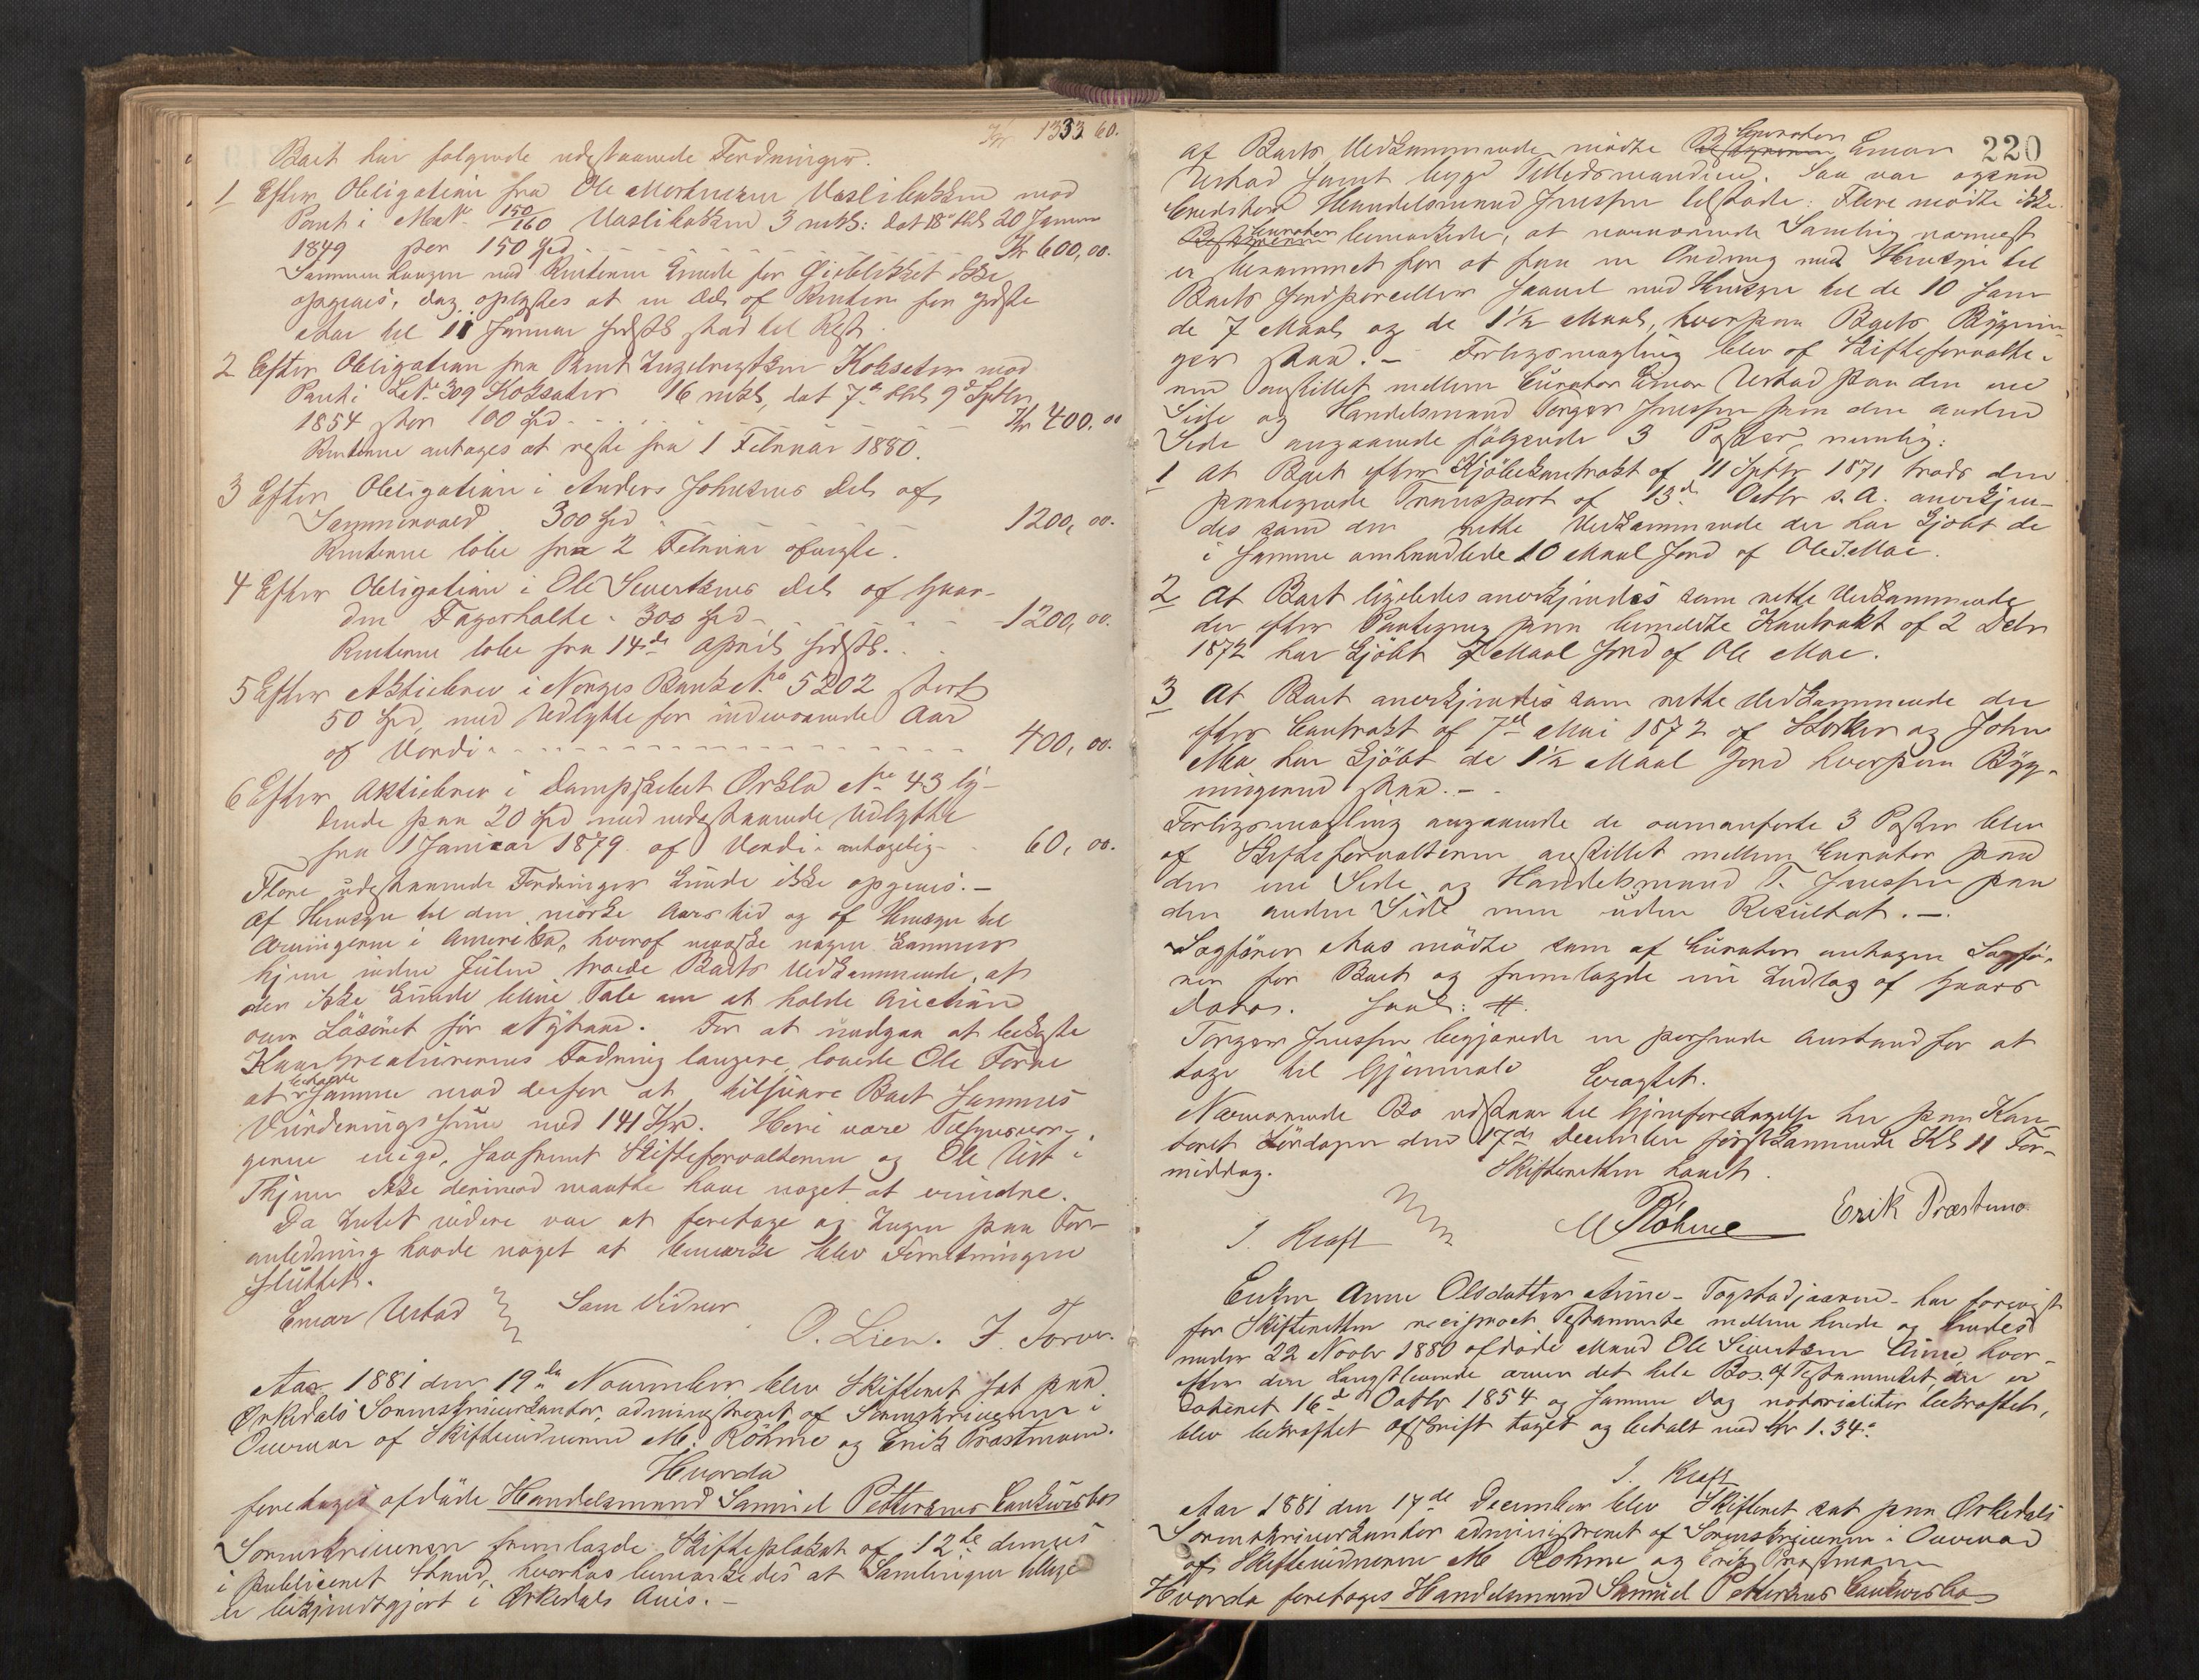 Kr 1333 60.
Boet har følgende udestaaende Fordringer.
1 Efter Obligation fra Ole Mortensen Vaslibakken mod
Pant i Mat. No 150/160 Vaslibakken 3 mkl: dat 18 20 Januar
1849 stor 150 Spd - - - - - Kr 600,00.
Sammenhængen med Renterne kunde for Øieblikket ikke
opgives, dog oplystes at en Del af Renten for sidste
Aar til 11 Januar sidstl. stod til Rest.
2 Efter Obligation fra Bernt Ingebrigtsen Koksæter mod
Pant i L. No 309 Koksæter 16 mkl, dat 7de 9de Septbr
1854 stor 100 Spd - - - - Kr 400,00
Renterne antages at reste fra 1 Februar 1880.
3 Efter Obligation i Anders Johnsens Del af
Sommervold 300 Spd - - - - 1200,00.
Renterne løbe fra 2 Februar
4 Efter Obligation i Ole Sivertsens Del af Gaar-
den Fagerholte - 300 Spd - - - - 1200,00.
Renterne løbe fra 14de April sidstl.
5 Efter Aktiebrev i Norges Bank No 5202 stort
50 Spd, med Udbytte for indeværende Aar
af Værdi - - - - - 400,00.
6 Efter Aktiebrev i Dampskibet Orkla No 43 ly-
dende paa 20 Spd med udestaaende Udbytte
fra 1 Januar 1879 af Værdi antagelig - - 60,00.
Flere udestaaende Fordringer kunde ikke opgives. -
Af Hensyn til den mørke Aarstid og af Hensyn til
Arvingerne i Amerika, hvoraf maaske nogen kommer
hjem inden Julen troede Boets Vedkommende, at
der ikke kunde blive Tale om at holde Auction
over Løsøret før Nytaar. For at undgaa at bekoste
Kreaturernes Fodring længere, lovede Ole Torve
at beholde samme mod derfor at tilsvare Boet sammes
Vurderingssum med 141 Kr. Heri vare Tilsynsvær-
gerne enige, saasnart Skifteforvalteren og Ole Vist i
Thjem ikke derimod maatte have noget at erindre.
Da Intet videre var at foretage og Ingen paa For-
anledning havde noget at bemærke blev Forretningen
sluttet.
Einar Urstad Som Vidner
O. Lien. I. Torve.
Aar 1881 den 19de November blev Skifteret sat paa
Orkedals Sorenskriverkontor, administreret af Sorenskriveren i
Overvær af Skiftevidnerne M. Röhme og Erik Præstmoen.
Hvorda
foretages afdøde Handelsmand Samuel Pettersens Concursbo
Sorenskriveren fremlagde Skifteplakat af 12te dennes
i publiceret Stand, hvorhos bemærkedes at Samlingen tillige
er bekjendtgjort i Orkedals Avis. -
220
af Boets Vedkommende mødte Curator Einar
Urstad samt begge Tillidsmændene. Saa var ogsaa
Creditor Handelsmand Jenssen tilstede: Flere mødte ikke.
Curator bemærkede, at nærværende Samling nærmest
er berammet for at faa en Ordning med Hensyn til
Boets Jordparceller saavel med Hensyn til de 10 som
de 7 Maal og de 1½ Maal, hvorpaa Boets Bygnin-
ger staa. - Forligsmægling blev af Skifteforvalte-
ren anstillet mellem Curator Einar Urstad paa den ene
Side og Handelsmand Torger Jenssen paa den anden
Side angaaende følgende 3 Poster, nemlig:
1 at Boet efter Kjøbekontrakt af 11 Septbr 1871 trods den
paategnede Transport af 13de Octbr s. A. anerkjen-
des som den rette Vedkommende der har kjøbt de
i samme omhandlede 10 Maal Jord af Ole J. Moe.
2 At Boet ligeledes anerkjendes som rette Vedkommende
der efter Paategning paa bemeldte Kontrakt af 2 Debr
1872 har kjøbt 7 Maal Jord af Ole Moe.
3 At Boet anerkjendes som rette Vedkommende der
efter Contrakt af 7de Mai 1872 af Størker og John
Moe har kjøbt de 1½ Maal Jord hvorpaa Byg-
ningerne staa. -
Forligsmægling angaaende de ovenanførte 3 Poster blev
af Skifteforvalteren anstillet mellem Curator paa
den ene Side og Handelsmand T. Jenssen paa
den anden Side men uden Resultat. -
Sagfører Aas mødte som af Curator antagen Sagfø-
rer for Boet og fremlagde en Indlæg af Gaars
Dato.
Torger Jenssen begjærede en passende Anstand for at
tage til Gjenmæle Eragtet.
Nærværende Bo udstaar til Gjenforetagelse her paa Kon-
toret Løndagen den 17de December førstkommende Kl 11 For-
middag. Skifteretten hævet.
J. Kraft M Röhme Erik Præstmo
Enken Anne Olsdatter Aune - Togstadjaaren - har forevist
for Skifteretten reciproct Testamente mellem hende og hendes
under 22 Novbr 1880 afdøde Mand Ole Sivertsen Aune, hvor-
efter den Længstlevende arver det hele Bo. Af Testamentet, der er
dateret 16de Octbr 1854 og samme Dag notarialiter bekræftet,
blev bekræftet Afskrift taget og betalt med Kr 1.34.
J. Kraft
Aar 1881 den 17de December blev Skifteret sat paa Orkedals
Sorenskriverkontor administreret af Sorenskriveren i Overvær
af Skiftevidnerne M Röhme og Erik Præstmoen
Hvorda foretages Handelsmand Samuel Pettersens Concursbo